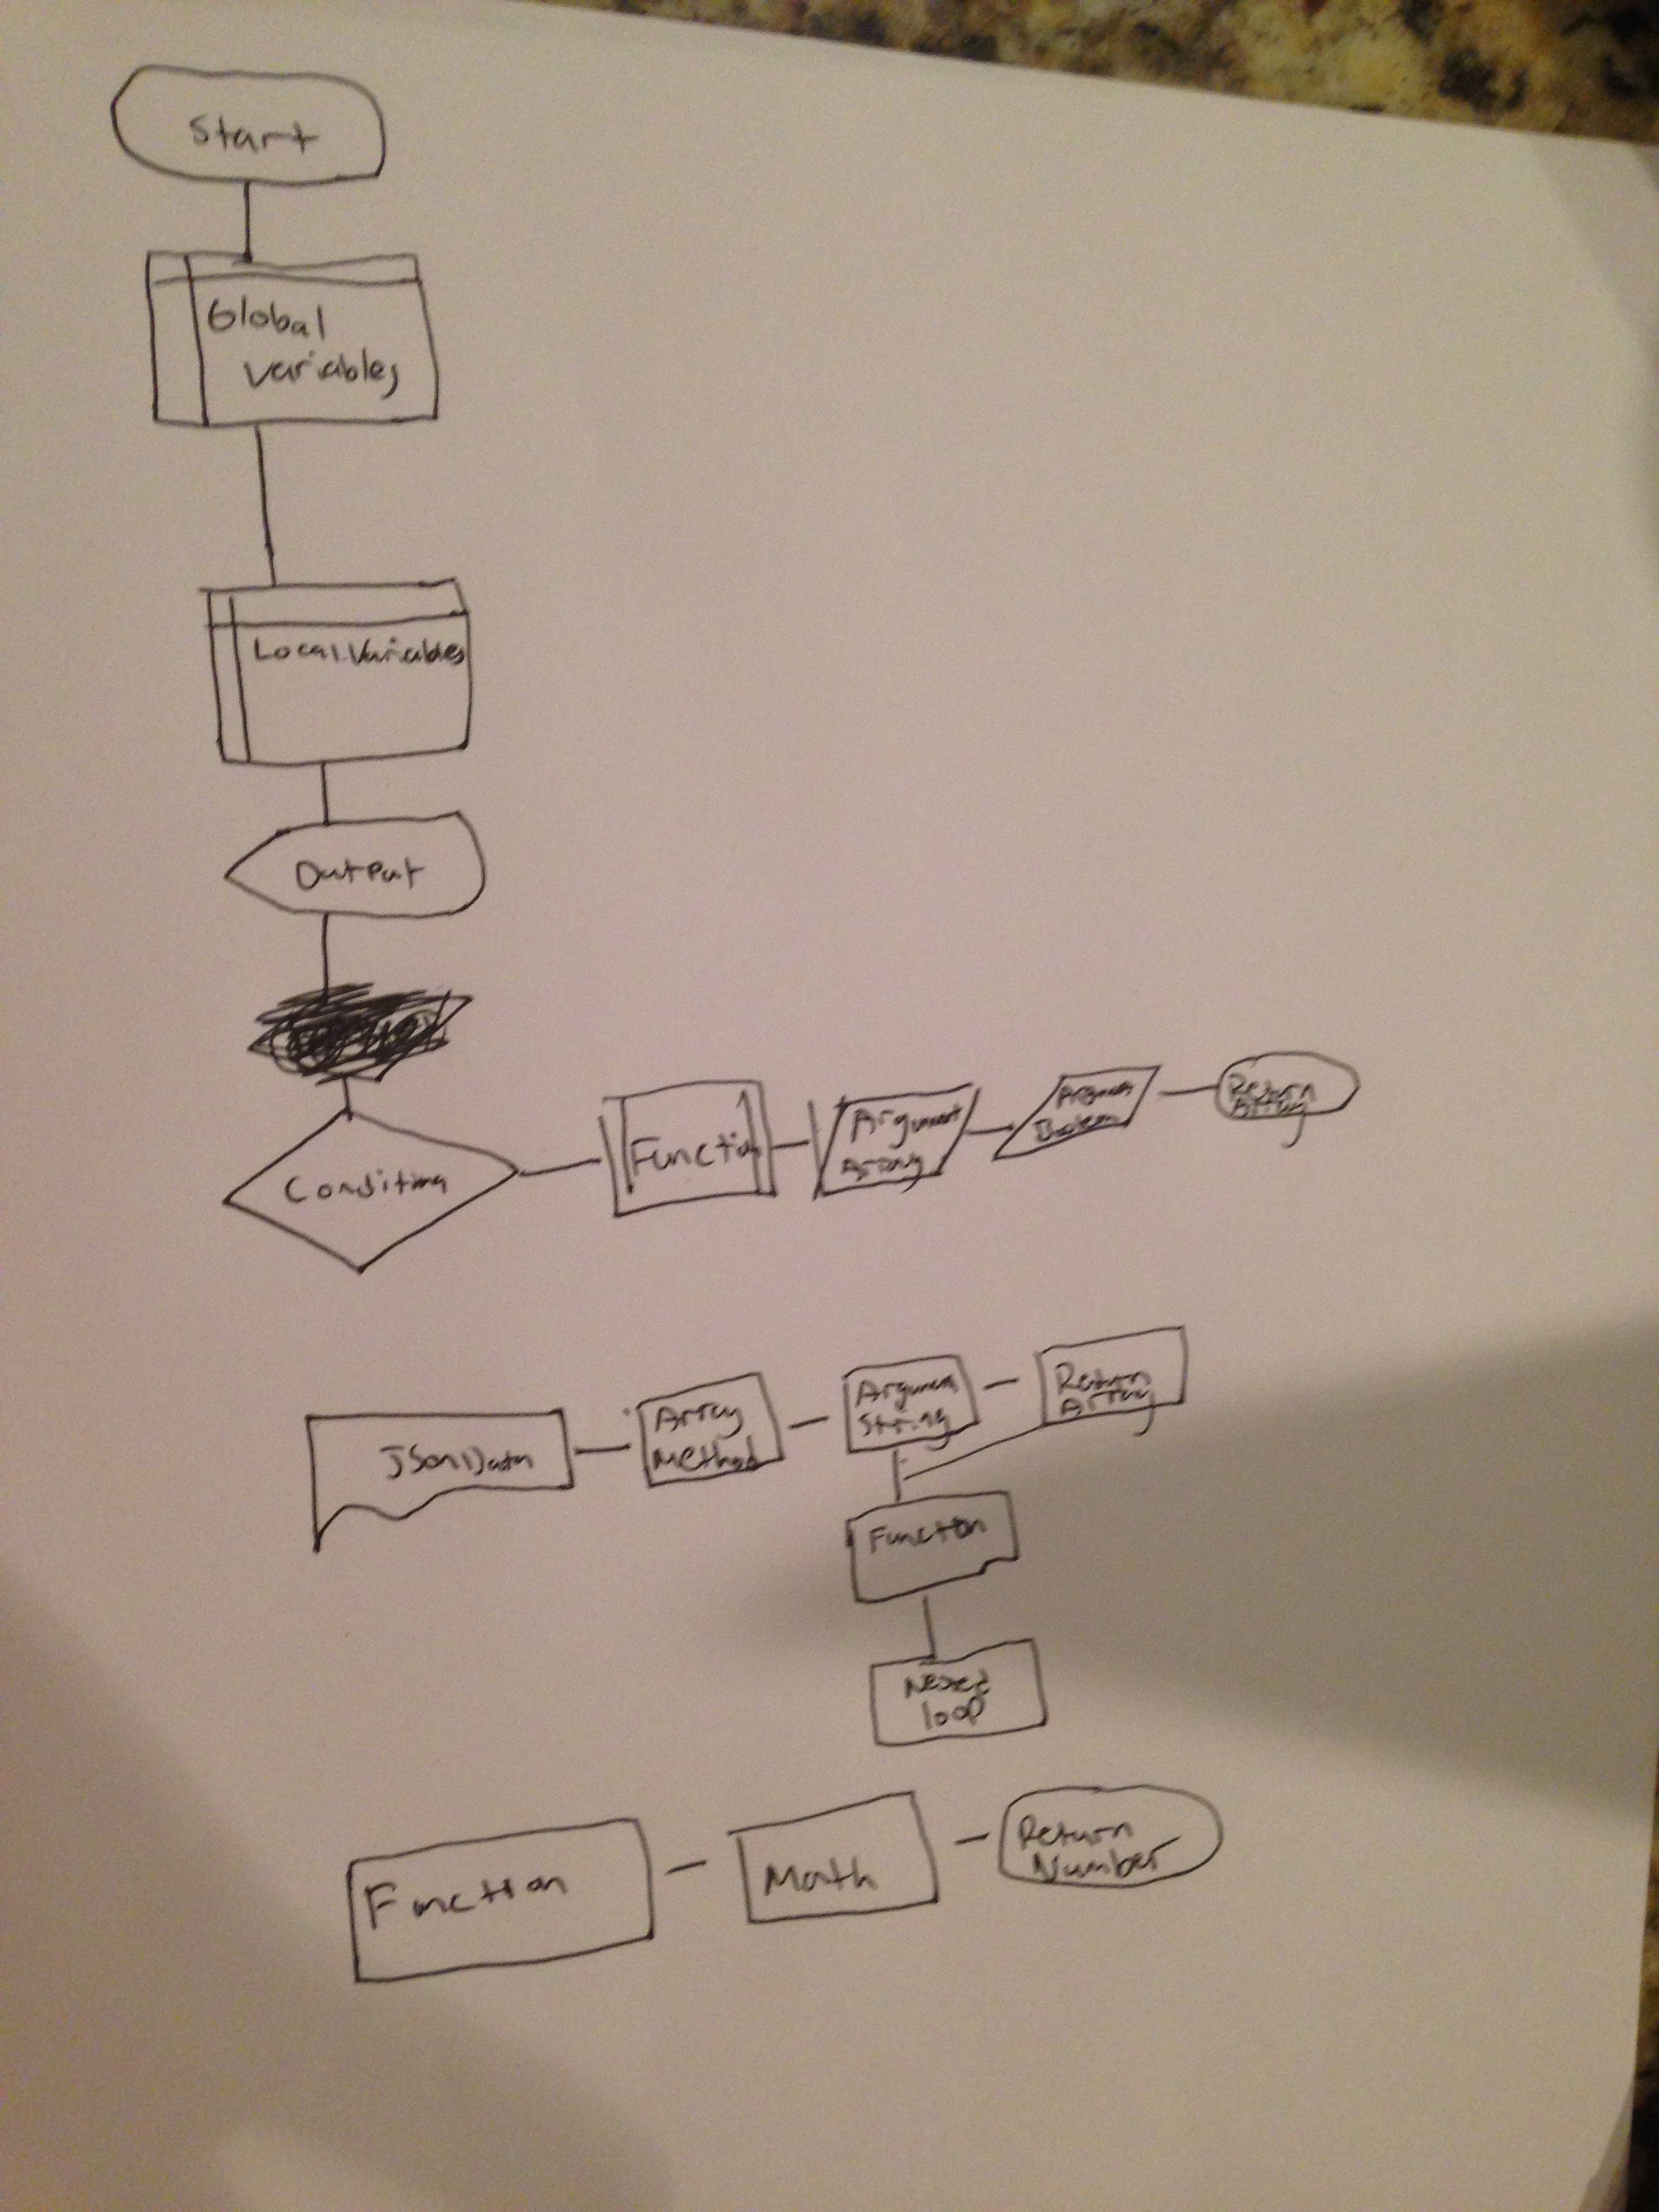 Start
Global
variables
Local Variables
Output
Condition
Function
Argument
Array
Argument
Boolean
Return
Array
JSon Data
Array
Method
Argument
String
Return
Array
Function
Nested
loop
Function
Math
Return
Number